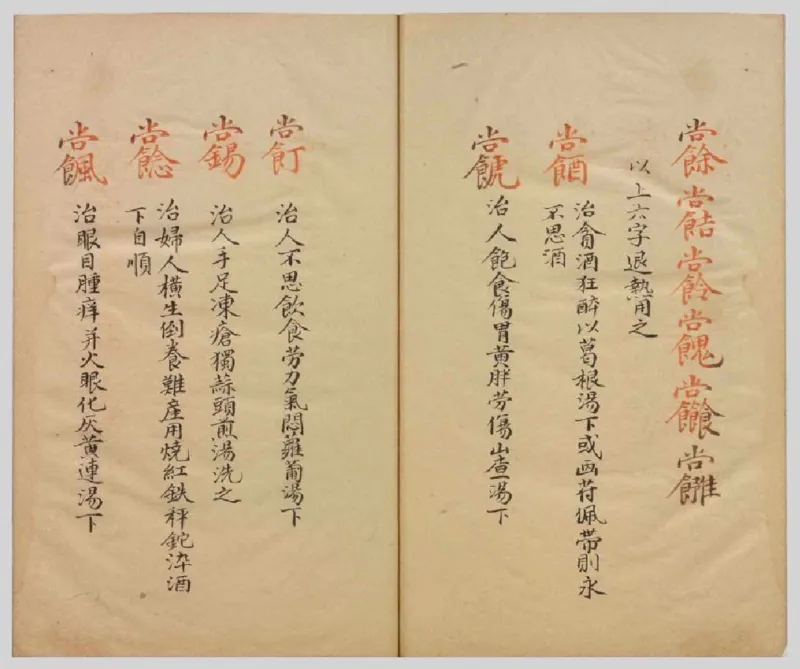 尚餘尚尚尚餽尚尚
以上六字退熱用之
尚
治貪酒狂醉以葛根湯下或画符佩帶則永
不思酒
尚
治人飽食傷胃黃胖勞傷山查湯下
尚飣
治人不思飲食勞力氣悶蘿蔔湯下
尚
治人手足凍瘡獨蒜頭煎湯洗之
尚
治婦人橫生倒養難產用燒紅鉄秤鉈淬酒
下自順
尚
治眼目腫痒并火眼化灰黃連湯下